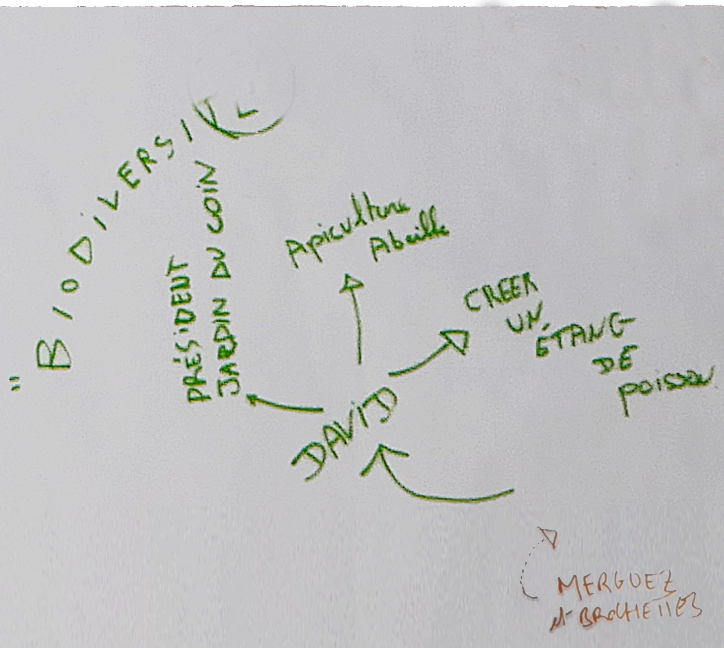 "BIODILERSITL
PRÉSIDENT
JARDIN DU COIN
Apiculture
Abeille
CREER
UN
ÉTANG
DE
poisson
DAVID
MERGUEZ
et BROCHETTES